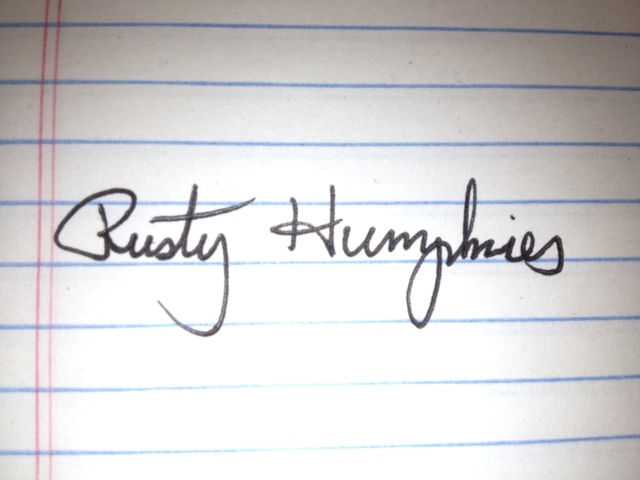 Rusty Humphries